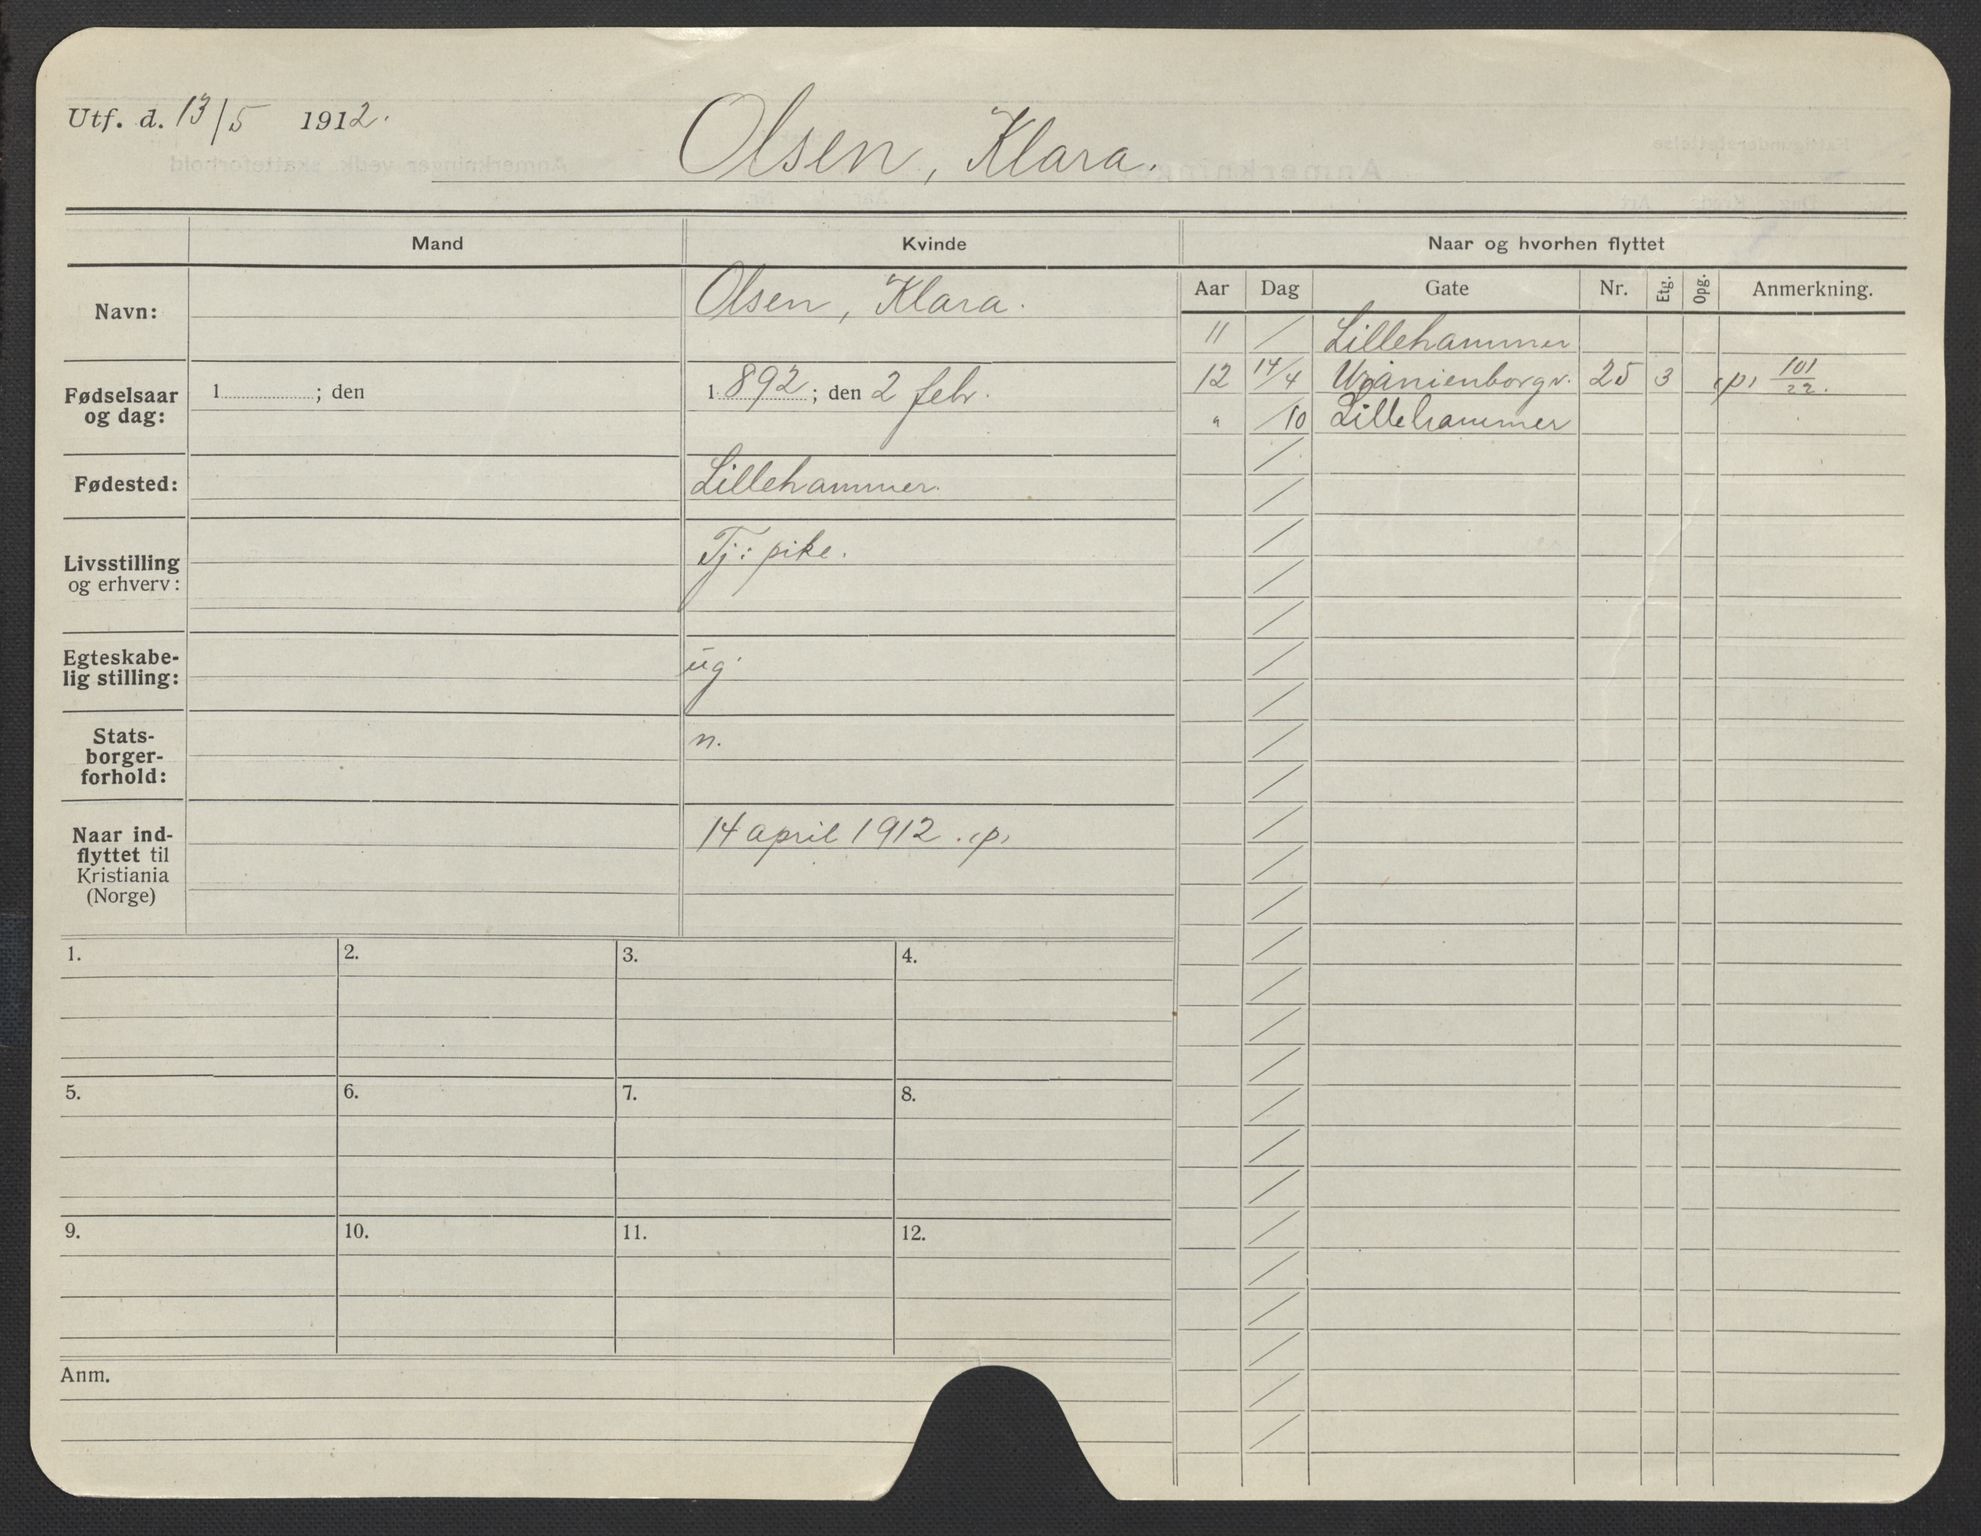 Utf. d. 13/5 1912.
Olsen, Klara.
Mand
Kvinde
Naar og hvorhen flyttet
Navn:
Olsen, Klara.
Fødselsaar
og dag:
1 ; den
1 892 ; den 2 febr.
Fødested:
Lillehammer.
Livsstilling
og erhverv:
Tj: pike.
Egteskabe-
lig stilling:
ug.
Stats-
borger-
forhold:
n.
Naar ind-
flyttet til
Kristiania
(Norge)
14 april 1912. (p)
Aar Dag Gate Nr. Etg. Opg. Anmerkning.
11 / Lillehammer
12 14/4 Uranienborgv. 25 3 (p) 101/22.
" /10 Lillehammer
1. 2. 3. 4.
5. 6. 7. 8.
9. 10. 11. 12.
Anm.